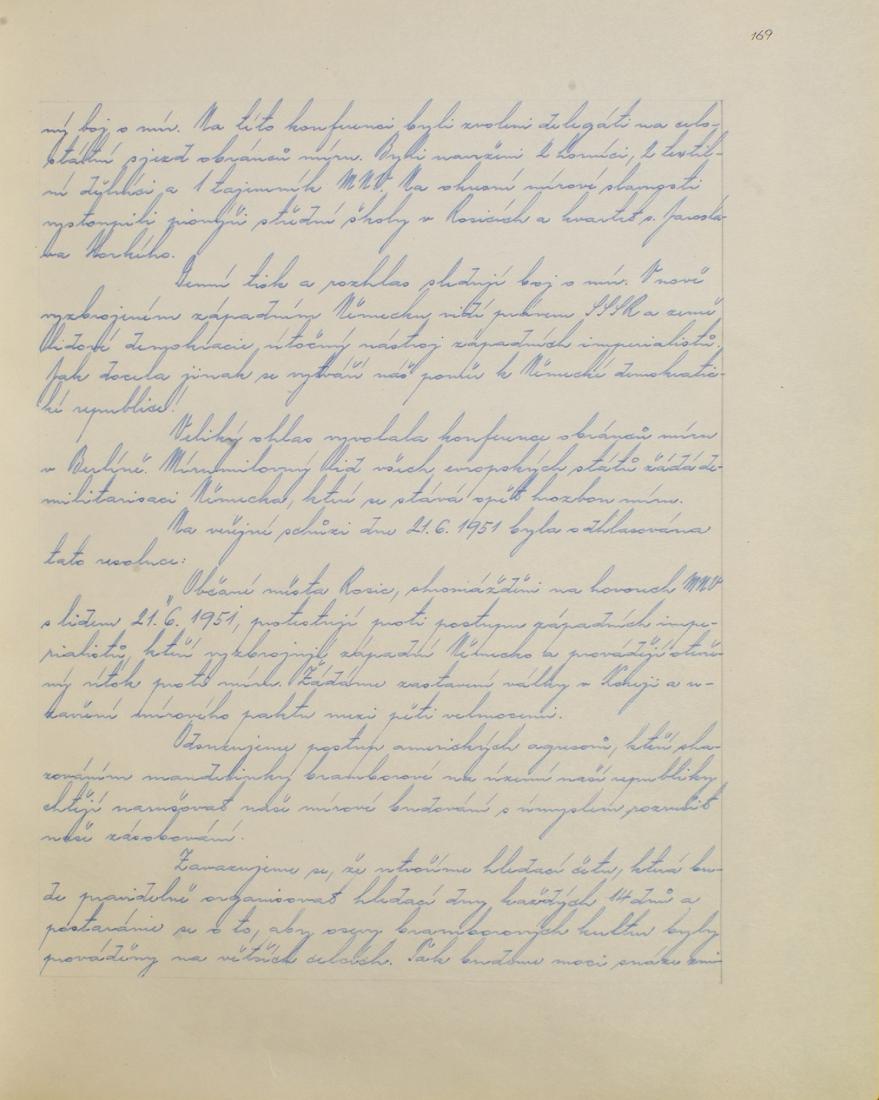 169
ný boj o mír. Na této konferenci byli zvoleni delegáti na celo-
státní sjezd obránců míru. Byli navrženi 2 horníci, 2 textil-
ní dělníci a 1 tajemník MNV. Na okresní mírové slavnosti
vystoupili pionýři střední školy v Rosicích a kvartet s. Jarosla-
va Horkého.
Denní tisk a rozhlas sledují boj o mír. V nově
vyzbrojeném západním Německu vidí právem SSSR a země
lidové demokracie, útočný nástroj západních imperialistů.
Jak docela jinak se vytváří náš poměr k Německé demokratic-
ké republice!
Veliký ohlas vyvolala konference obránců míru
v Berlíně. Mírumilovný lid všech evropských států žádá de-
militarisaci Německa, které se stává opět hrozbou míru.
Na veřejné schůzi dne 21.6.1951 byla odhlasována
tato resoluce:
"Občané města Rosic, shromáždění na hovorech MNV
s lidem 21.6.1951, protestují proti postupu západních impe-
rialistů, kteří vyzbrojují západní Německo a provádějí otevře-
ný útok proti míru. Žádáme zastavení války v Koreji a u-
zavření mírového paktu mezi pěti velmocemi.
Odsuzujeme postup amerických agresorů, kteří sha-
zováním mandelinky bramborové na území naší republiky
chtějí narušovat naše mírové budování s úmyslem rozvrátit
naše zásobování.
Zavazujeme se, že utvoříme hledací četu, která bu-
de pravidelně organisovat hledací dny každých 14 dnů a
postaráme se o to, aby osevy bramborových kultur byly
prováděny na větších celcích. Tak budeme moci snáze zni-